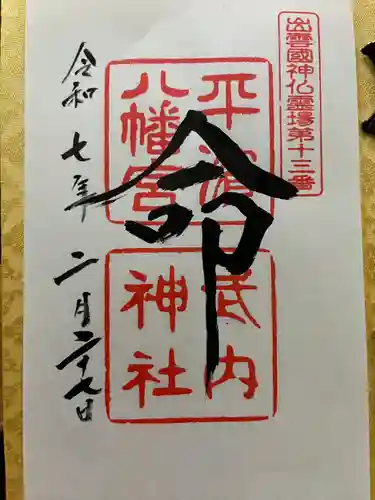 出雲國神仏霊場第十三番
平濱
八幡宮
武内
神社
命
令和七年二月二十九日